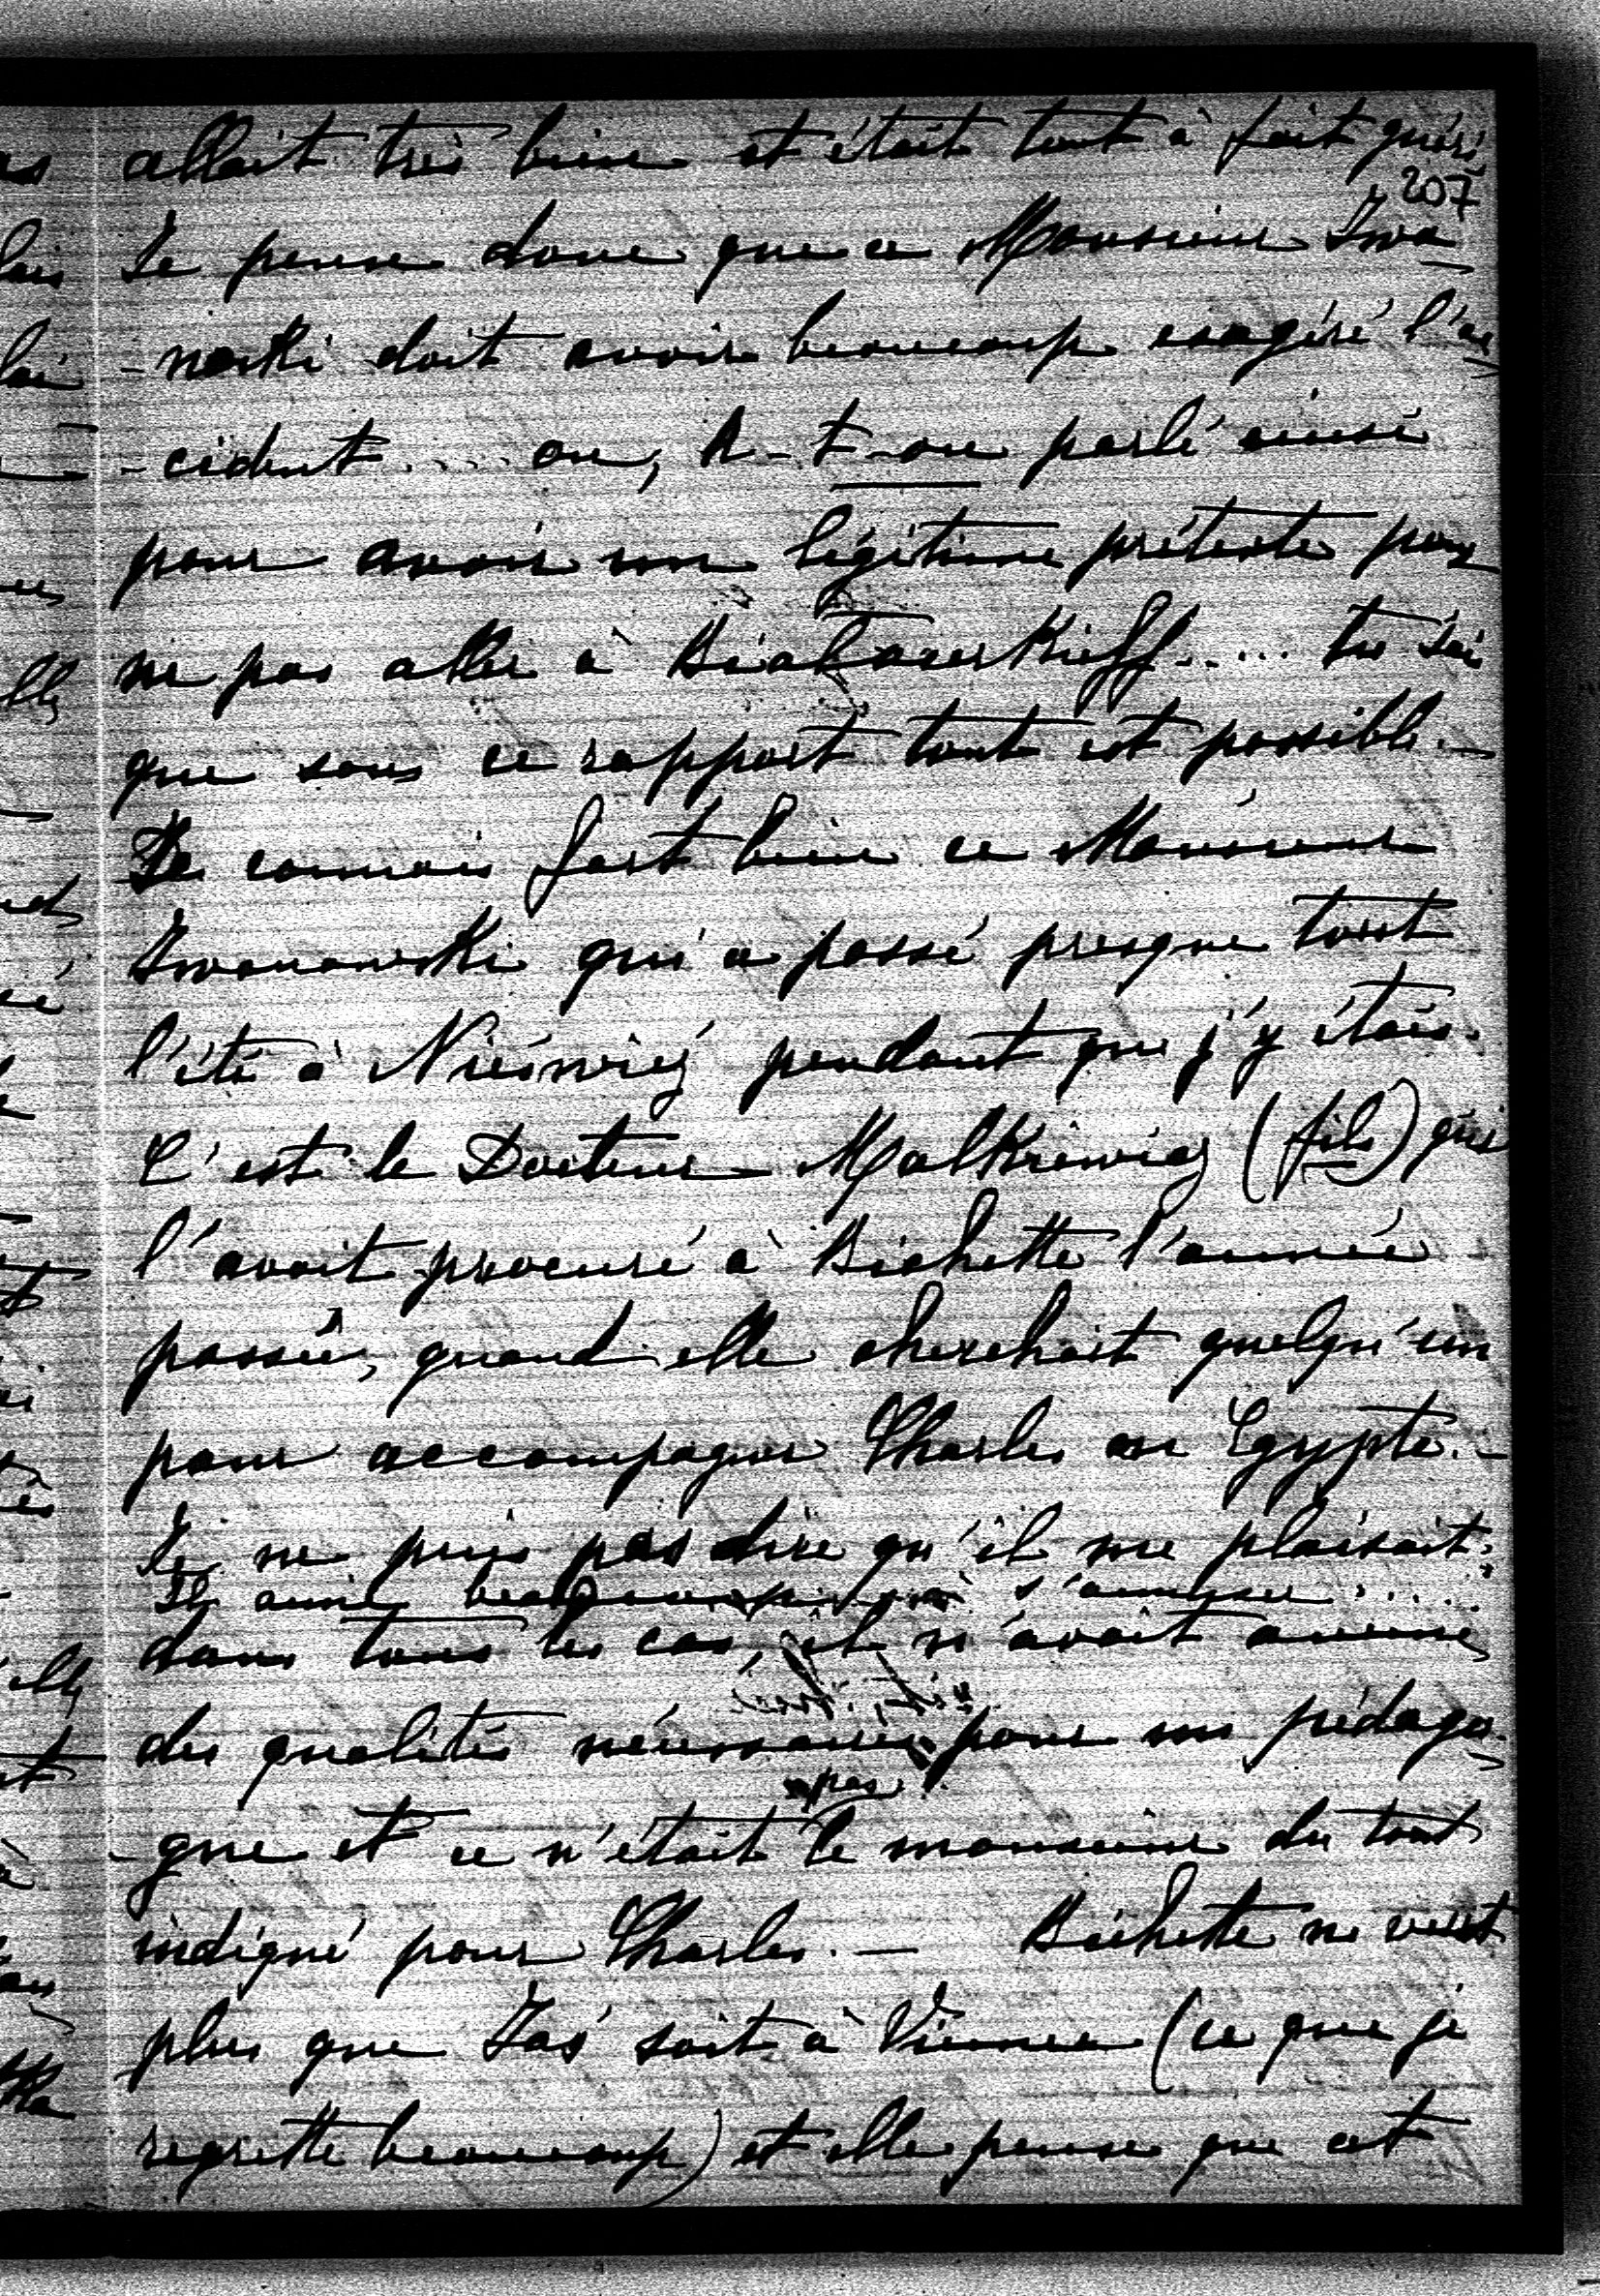 allait très bien et était tout à fait guéri.
207
Je pense donc que ce Monsieur Iwa
- noski doit avoir beaucoup exagéré l'ac
- cident .... ou, A-t-on parlé ainsi
pour avoir un légitime prétexte pour
ne pas aller à Białacerkieff ..... tu sai
que sous ce rapport tout est possible. —
Je connais fort bien ce Monsieur
Iwanowski qui a passé presque tout
l'été à Nieśwież pendant que j'y étais.
C'est le Docteur Malkiewicz (fils) qui
l'avait procuré à Bichette l'année
passée, quand elle cherchait quelqu'un
pour accompagner Charles en Egypte. —
Je ne puis pas dire qu'il me plaisait;
Il aime beaucoup à s'amuser .....
dans tous les cas, il n'avait aucune
des qualités nécessaires pour un pédago-
- gue et ce n'était pas le monsieur du tout
indiqué pour Charles. — Bichette ne veut
plus que Jaś soit à Vienne (ce que je
regrette beaucoup) et elle pense que cet